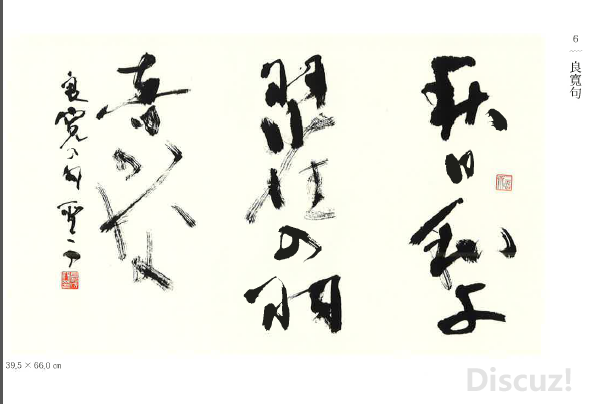 6
良寛句
秋日和千
羽雀の羽
音
良寛の句
39.5 × 66.0 ㎝
Discuz!